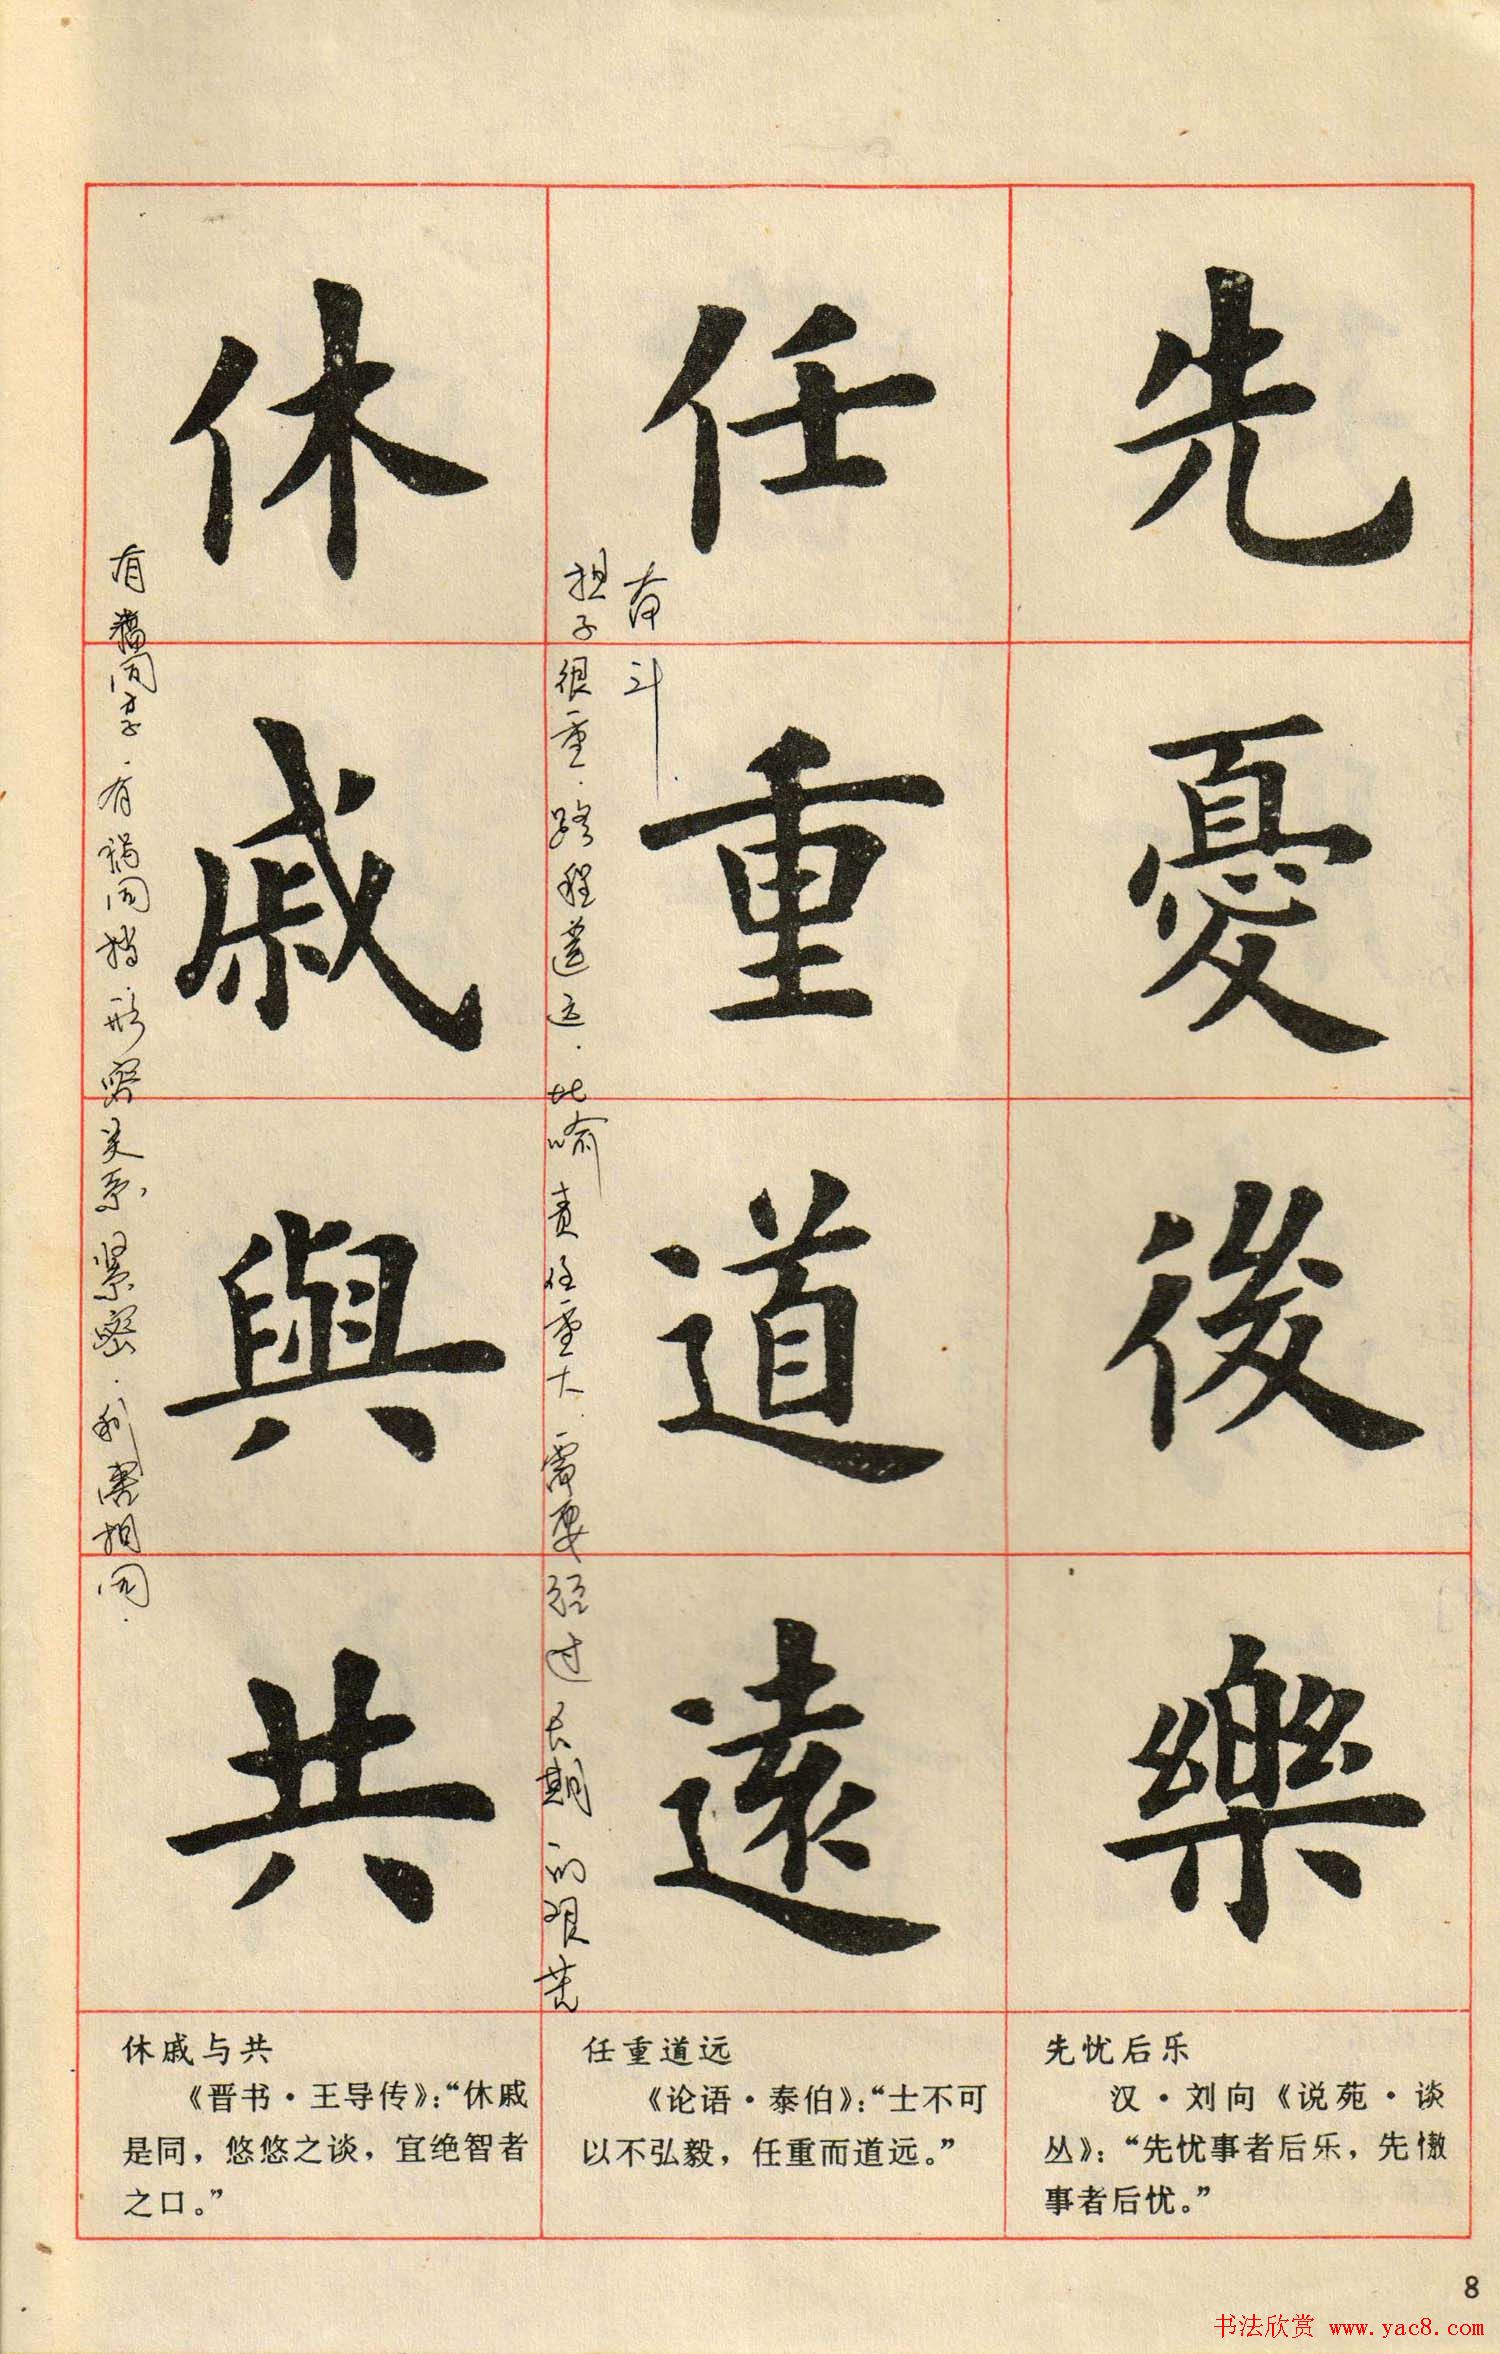 先憂後樂
任重道遠
休戚與共
担子很重.路程遥远.比喻责任重大.需要经过长期的艰苦
奋斗
有福同享.有祸同挡.形容关系紧密.利害相同.
先忧后乐
汉·刘向《说苑·谈
丛》：“先忧事者后乐，先慠
事者后忧。”
任重道远
《论语·泰伯》：“士不可
以不弘毅，任重而道远。”
休戚与共
《晋书·王导传》：“休戚
是同，悠悠之谈，宜绝智者
之口。”
8
书法欣赏 www.yac8.com